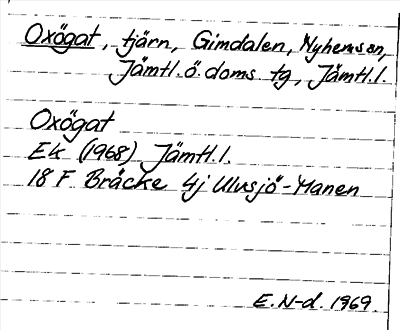 Oxögat, tjärn, Gimdalen, Nyhemssn,
Jämtl. ö. doms. tg, Jämtl. l.
Oxögat
Ek (1968) Jämtl. l.
18 F Bräcke 4j Ulvsjö-Manen
E. N-d. 1969.